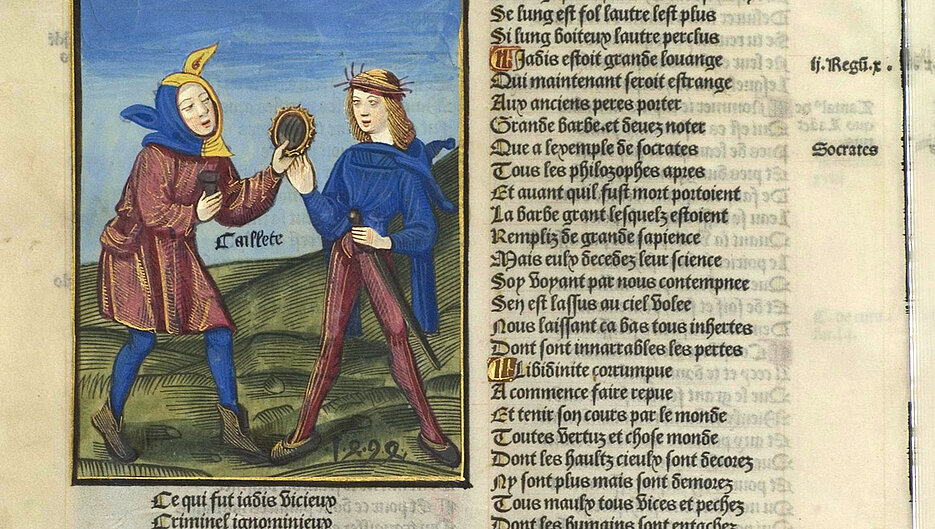 Caillete
1.2.9.9.
Ce qui fut iadis vicieux
Criminel ignominieux
Se lung est fol lautre lest plus
Si lung boiteux lautre perclus
Jadis estoit grande louange
Qui maintenant seroit estrange
Aux anciens peres porter
Grande barbe.et deuez noter
Que a lexemple de socrates
Tous les philozophes apres
Et auant quil fust mort portoient
La barbe grant lesquelz estoient
Rempliz de grande sapience
Mais eulx decedez leur science
Soy voyant par nous contempnee
Sen est lassus au ciel volee
Nous laissant ca bas tous inhertes
Dont sont innarrables les pertes
Libidinite corrumpue
A commence faire repue
Et tenir son cours par le monde
Toutes vertuz et chose monde
Dont les haultz cieulx sont decorez
Ny sont plus mais sont demorez
Tous maulx tous vices et pechez
Dont les humains sont entachez
ij. Regū.x.
Socrates